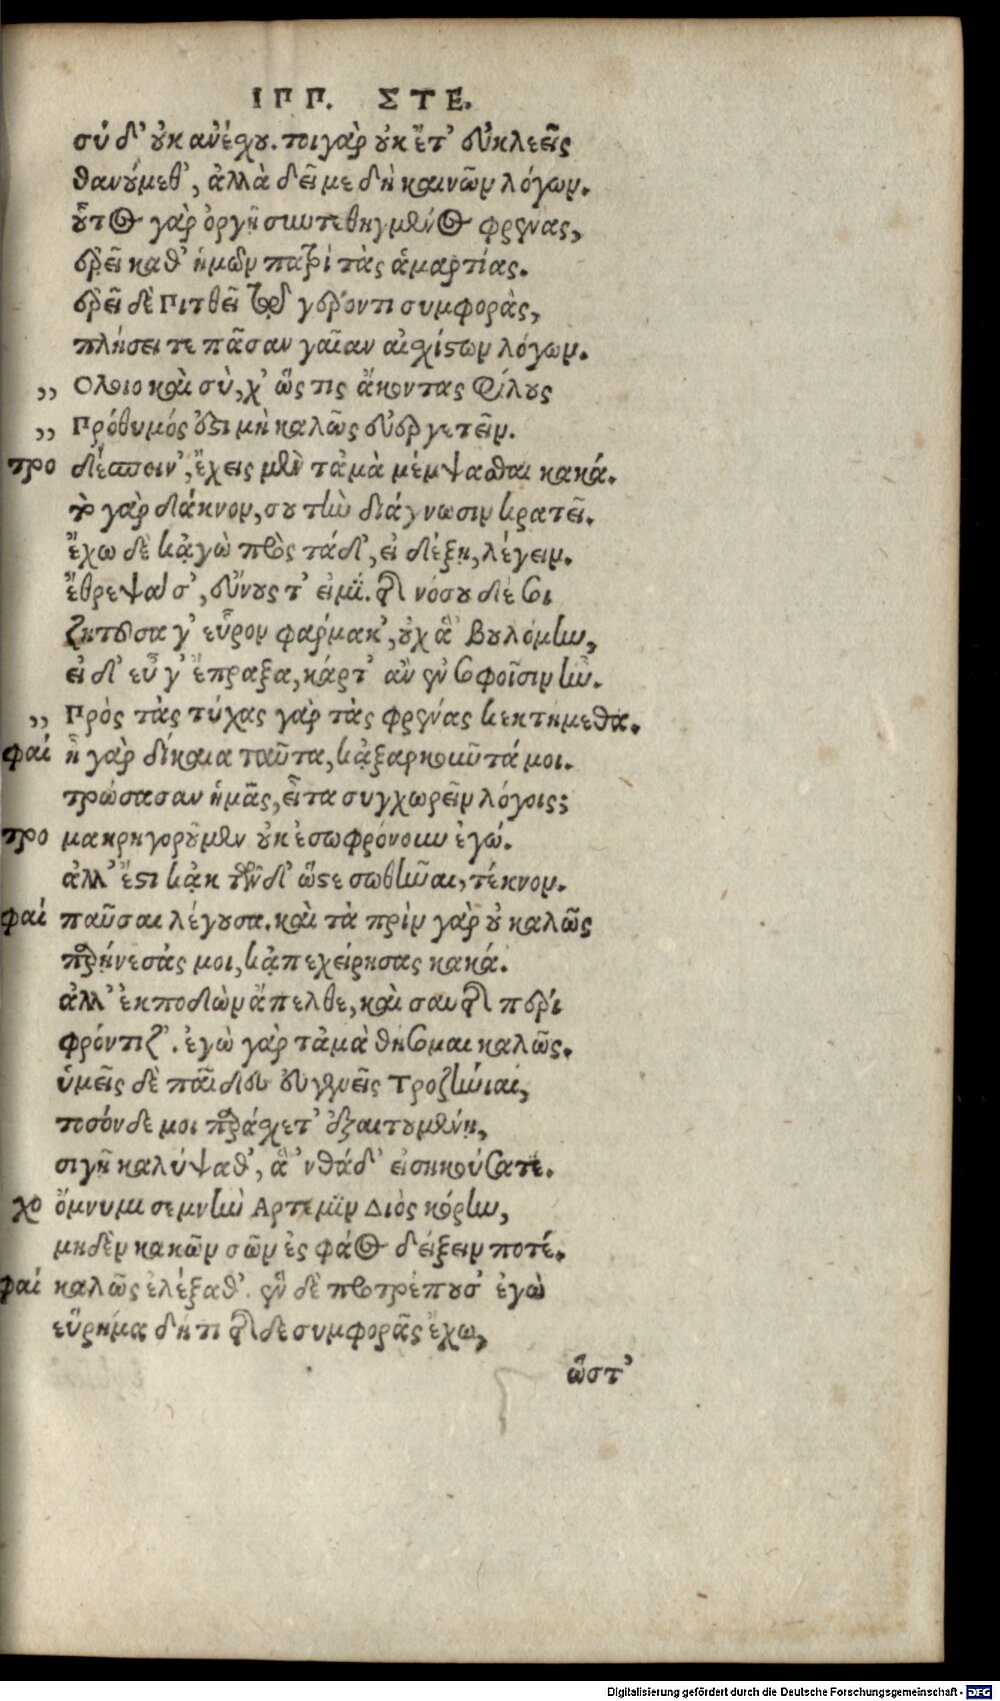 ΙΠΠ. ΣΤΕ.
σύ δ' οὐκ ἀνέσχου. τοιγὰρ οὐκ ἔτ' εὐκλεεῖς
θανούμεθ', ἀλλὰ δεῖ με δὴ καινῶν λόγων.
οὗτος γὰρ ὀργῇ συντεθηγμένος φρένας,
ἐρεῖ καθ' ἡμῶν πατρὶ τὰς ἁμαρτίας.
ἐρεῖ δὲ Πιτθεῖ τῷ γέροντι συμφορὰς,
πλήσει τε πᾶσαν γαῖαν αἰσχίστων λόγων.
,, Ολοιο καὶ σὺ, χ' ὥς τις ἄκοντας φίλους
,, Πρόθυμός ἐστι μὴ καλῶς εὐεργετεῖν.
τρο δέσποιν', ἔχεις μὲν τἀμὰ μέμψασθαι κακά.
τὸ γὰρ δάκνον, σου τὴν διάγνωσιν κρατεῖ.
ἔχω δὲ κᾀγὼ πρὸς τάδ', εἰ δέξῃ, λέγειν.
ἔθρεψά σ', εὔνους τ' εἰμί. τῆς νόσου δέ σοι
ζητοῦσα γ' εὗρον φάρμακ', οὐχ ἃ' βουλόμην,
εἰ δ' εὖ γ' ἔπραξα, κάρτ' ἂν ἐν σοφοῖσιν ἦν.
,, Πρὸς τὰς τύχας γὰρ τὰς φρένας κεκτήμεθα.
φαί ἦ γὰρ δίκαια ταῦτα, κᾀξαρκοῦντά μοι.
τρώσασαν ἡμᾶς, εἶτα συγχωρεῖν λόγοις;
τρο μακρηγοροῦμεν οὐκ ἐσωφρόνουν ἐγώ.
ἀλλ' ἔστι κᾀκ τῶνδ' ὥστε σωθῆναι, τέκνον.
φαί παῦσαι λέγουσα. καὶ τὰ πρὶν γὰρ οὐ καλῶς
παρῄνεσάς μοι, κᾀπεχείρησας κακά.
ἀλλ' ἐκποδὼν ἄπελθε, καὶ σαυτῆς πέρι
φρόντιζ'. ἐγὼ γὰρ τἀμὰ θήσομαι καλῶς.
ὑμεῖς δὲ παῖδες εὐγενεῖς Τροζήνιαι,
τοσόνδε μοι παράσχετ' ἐξαιτουμένῃ,
σιγῇ καλύψαθ', ἃ' νθάδ' εἰσηκούσατε.
χο ὄμνυμι σεμνὴν Αρτεμιν Διὸς κόρην,
μηδὲν κακῶν σῶν ἐς φάος δείξειν ποτέ.
φαί καλῶς ἐλέξαθ'. ἓν δὲ προτρέπουσ' ἐγὼ
εὕρημα δή τι τῆσδε συμφορᾶς ἔχω,
ὥστ'
Digitalisierung gefördert durch die Deutsche Forschungsgemeinschaft - DFG